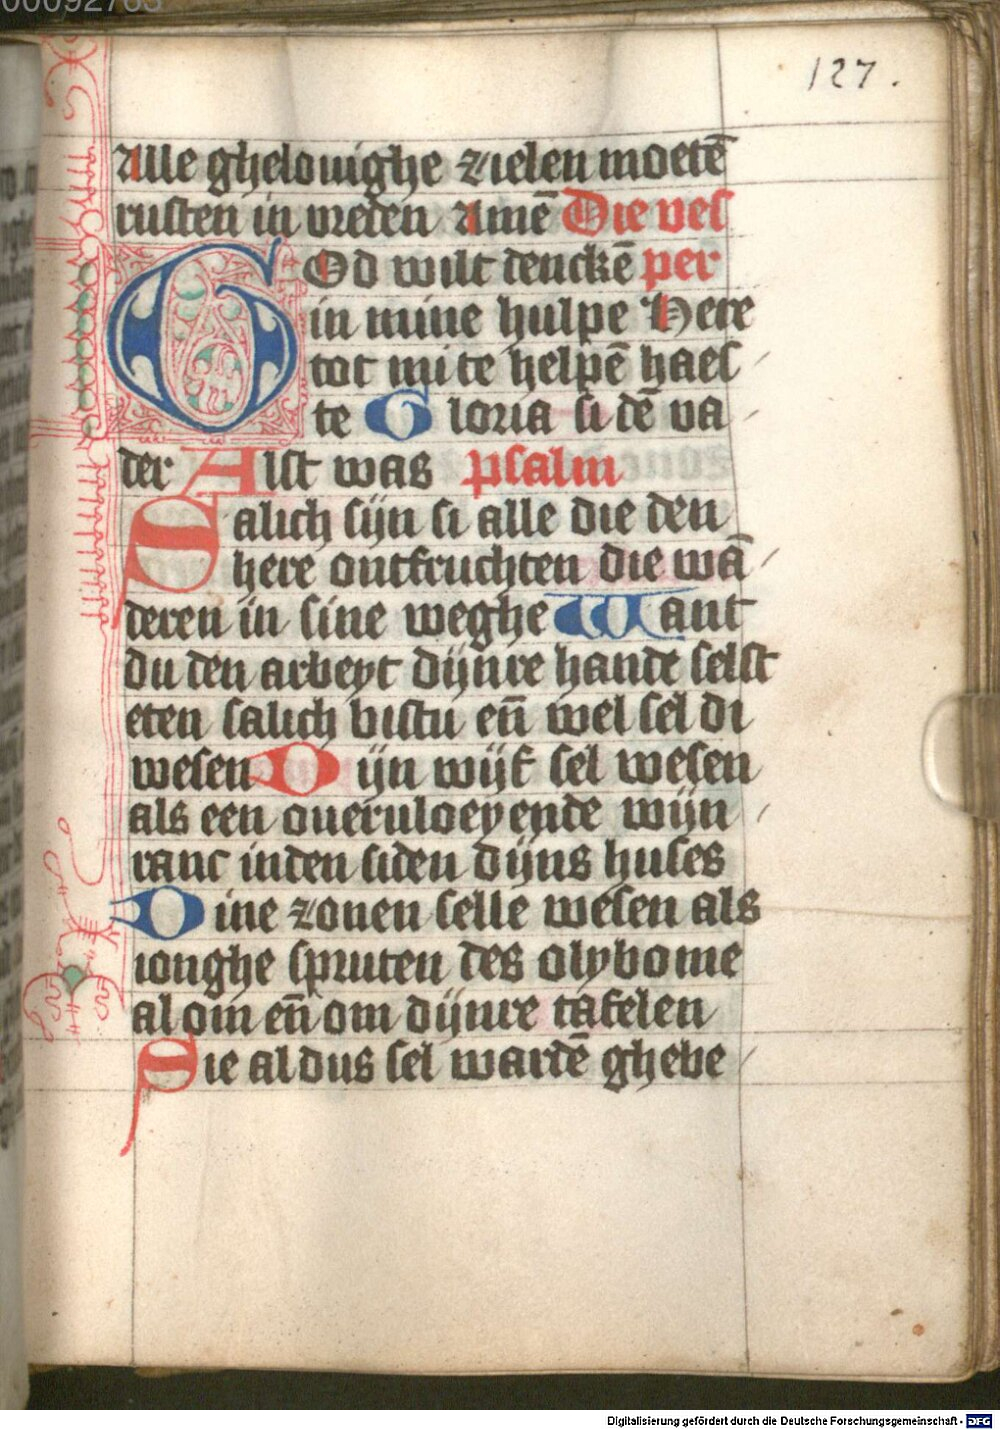 00092763
127.
Alle ghelouighe zielen moetē
rusten in vreden Amē Die ves
GOd wilt denckē per
in mine hulpe Here
tot mi te helpē haes
te Gloria si dē va
der Alst was psalm
Salich sijn si alle die den
here ontfruchten die wā
deren in sine weghe Want
du den arbeyt dijnre hande selst
eten salich bistu eñ wel sel di
wesen Dijn wijf sel wesen
als een oueruloeyende wijn
ranc inden siden dijns huses
Dine zonen selle wesen als
ionghe spruten des olybome
al om eñ om dijnre tafelen
Sie aldus sel wardē ghebe
Digitalisierung gefördert durch die Deutsche Forschungsgemeinschaft - DFG